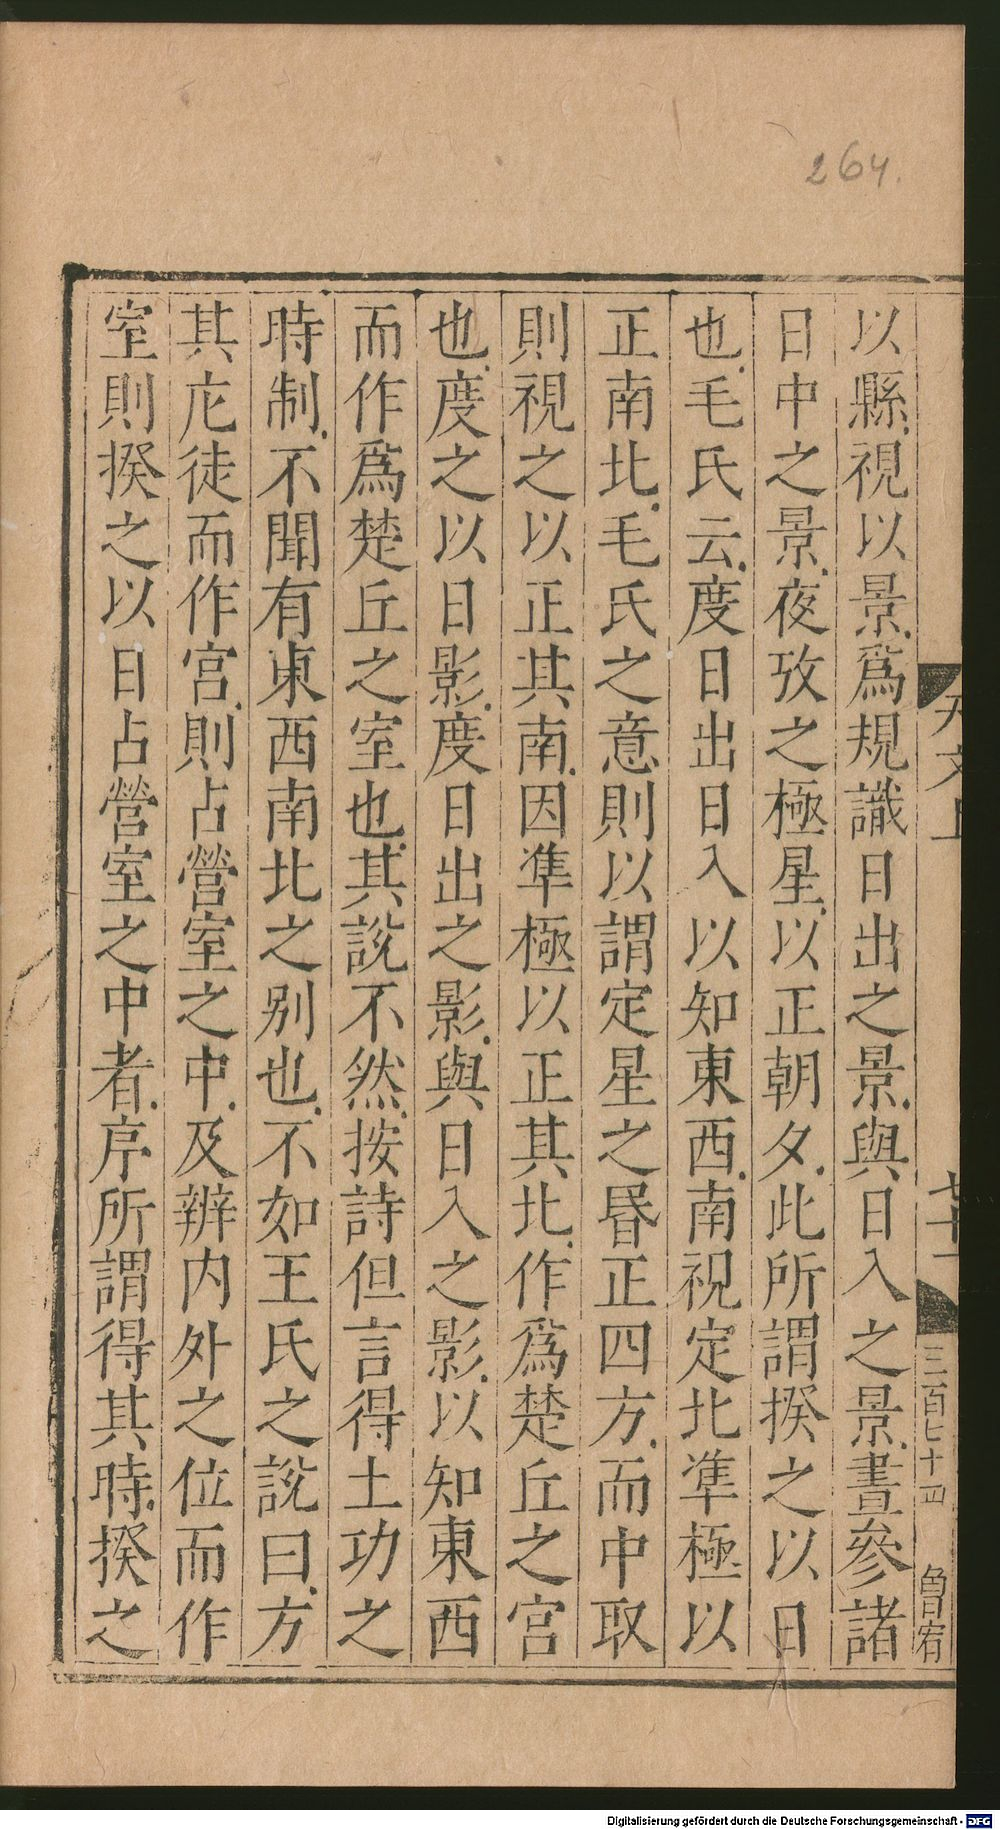 264.
以縣視以景爲規識日出之景與日入之景晝參諸
日中之景夜攷之極星以正朝夕此所謂揆之以日
也毛氏云度日出日入以知東西南視定北準極以
正南北毛氏之意則以謂定星之昏正四方而中取
則視之以正其南因準極以正其北作爲楚丘之宮
也度之以日影度日出之影與日入之影以知東西
而作爲楚丘之室也其說不然按詩但言得土功之
時制不聞有東西南北之別也不如王氏之說曰方
其庀徒而作宮則占營室之中及辨内外之位而作
室則揆之以日占營室之中者序所謂得其時揆之
七十一
三百七十四
Digitalisierung gefördert durch die Deutsche Forschungsgemeinschaft - DFG